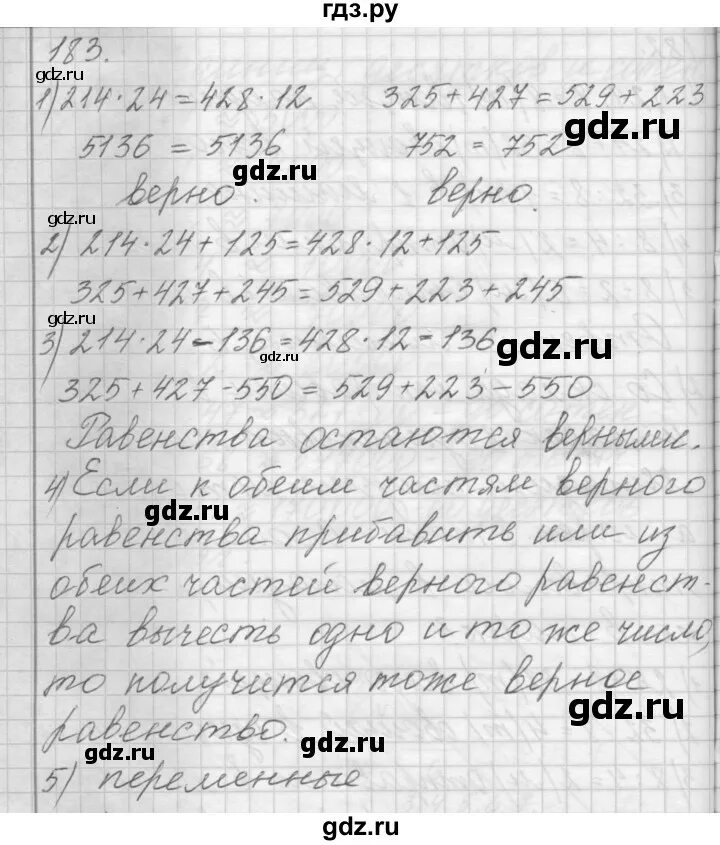 гдз.ру
183.
1) 214·24=428·12 325+427=529+223
gdz.ru
gdz.ru
5136 = 5136 752 = 752
gdz.ru
верно. верно.
gdz.ru
2) 214·24+125=428·12+125
325+427+245=529+223+245
gdz.ru
3) 214·24-136=428·12-136
gdz.ru
gdz.ru
325+427-550=529+223-550
Равенства остаются верными.
4) Если к обеим частям верного
gdz.ru
равенства прибавить или из
gdz.ru
обеих частей верного равенст-
ва вычесть одно и то же число,
то получится тоже верное
gdz.ru
равенство.
gdz.ru
gdz.ru
5) переменные
gdz.ru
gdz.ru